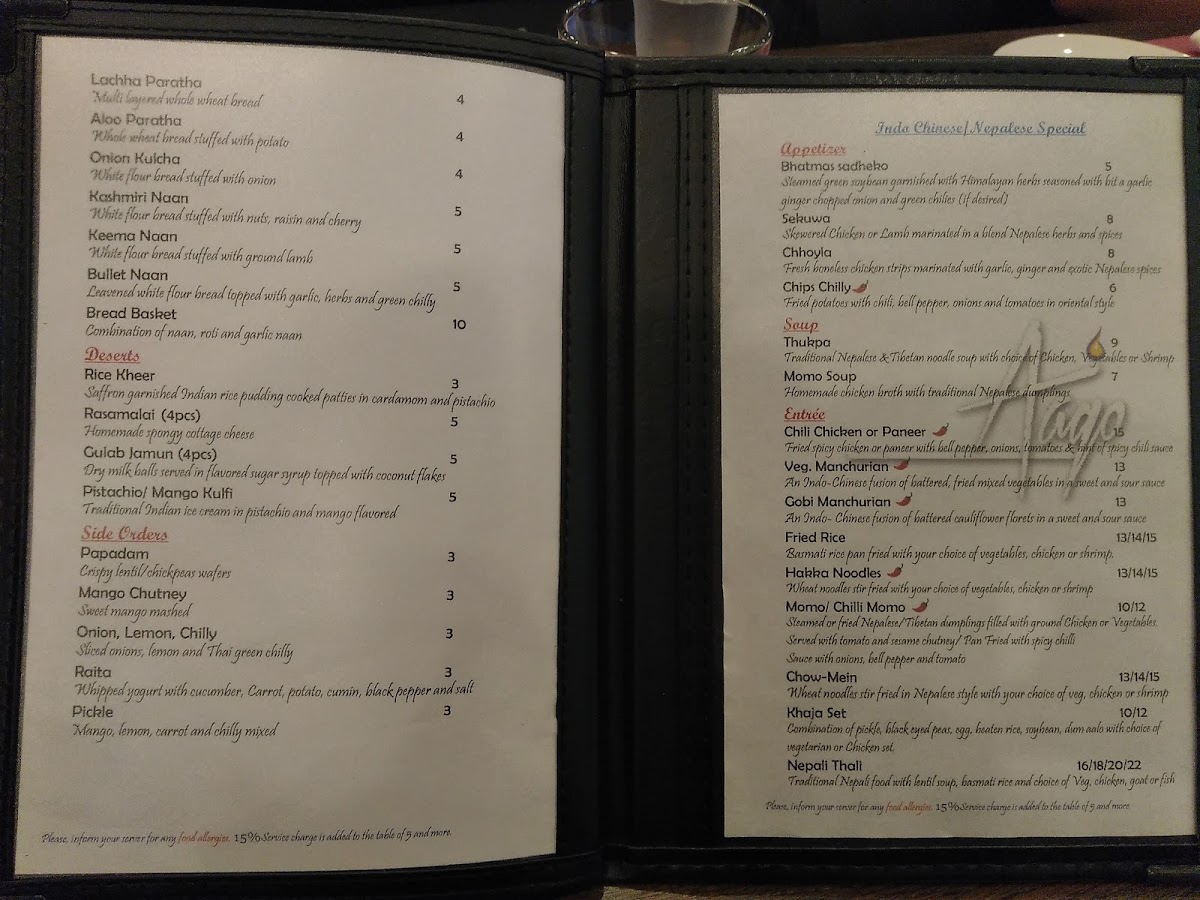 Lachha Paratha
Multi layered whole wheat bread 4
Aloo Paratha
Whole wheat bread stuffed with potato 4
Onion Kulcha
White flour bread stuffed with onion 4
Kashmiri Naan
White flour bread stuffed with nuts, raisin and cherry 5
Keema Naan
White flour bread stuffed with ground lamb 5
Bullet Naan
Leavened white flour bread topped with garlic, herbs and green chilly 5
Bread Basket
Combination of naan, roti and garlic naan 10
Deserts
Rice Kheer 3
Saffron garnished Indian rice pudding cooked patties in cardamom and pistachio
Rasamalai (4pcs) 5
Homemade spongy cottage cheese
Gulab Jamun (4pcs) 5
Dry milk balls served in flavored sugar syrup topped with coconut flakes
Pistachio/ Mango Kulfi 5
Traditional Indian ice cream in pistachio and mango flavored
Side Orders
Papadam 3
Crispy lentil/chickpeas wafers
Mango Chutney 3
Sweet mango mashed
Onion, Lemon, Chilly 3
Sliced onions, lemon and Thai green chilly
Raita 3
Whipped yogurt with cucumber, Carrot, potato, cumin, black pepper and salt
Pickle 3
Mango, lemon, carrot and chilly mixed
Please, inform your server for any food allergies. 15% Service charge is added to the table of 5 and more.
Indo Chinese/Nepalese Special
Appetizer
Bhatmas sadheko 5
Steamed green soybean garnished with Himalayan herbs seasoned with bit a garlic
ginger chopped onion and green chilies (if desired)
Sekuwa 8
Skewered Chicken or Lamb marinated in a blend Nepalese herbs and spices
Chhoyla 8
Fresh boneless chicken strips marinated with garlic, ginger and exotic Nepalese spices
Chips Chilly 6
Fried potatoes with chili, bell pepper, onions and tomatoes in oriental style
Soup
Thukpa 9
Traditional Nepalese & Tibetan noodle soup with choice of Chicken, Vegetables or Shrimp
Momo Soup 7
Homemade chicken broth with traditional Nepalese dumplings
Aago
Entrée
Chili Chicken or Paneer 15
Fried spicy chicken or paneer with bell pepper, onions, tomatoes & hint of spicy chili sauce
Veg. Manchurian 13
An Indo-Chinese fusion of battered, fried mixed vegetables in a sweet and sour sauce
Gobi Manchurian 13
An Indo- Chinese fusion of battered cauliflower florets in a sweet and sour sauce
Fried Rice 13/14/15
Basmati rice pan fried with your choice of vegetables, chicken or shrimp.
Hakka Noodles 13/14/15
Wheat noodles stir fried with your choice of vegetables, chicken or shrimp
Momo/ Chilli Momo 10/12
Steamed or fried Nepalese/Tibetan dumplings filled with ground Chicken or Vegetables.
Served with tomato and sesame chutney/ Pan Fried with spicy chilli
Sauce with onions, bell pepper and tomato
Chow-Mein 13/14/15
Wheat noodles stir fried in Nepalese style with your choice of veg, chicken or shrimp
Khaja Set 10/12
Combination of pickle, black eyed peas, egg, beaten rice, soybean, dum aalo with choice of
vegetarian or Chicken set.
Nepali Thali 16/18/20/22
Traditional Nepali food with lentil soup, basmati rice and choice of Veg, chicken, goat or fish
Please, inform your server for any food allergies. 15% Service charge is added to the table of 5 and more.